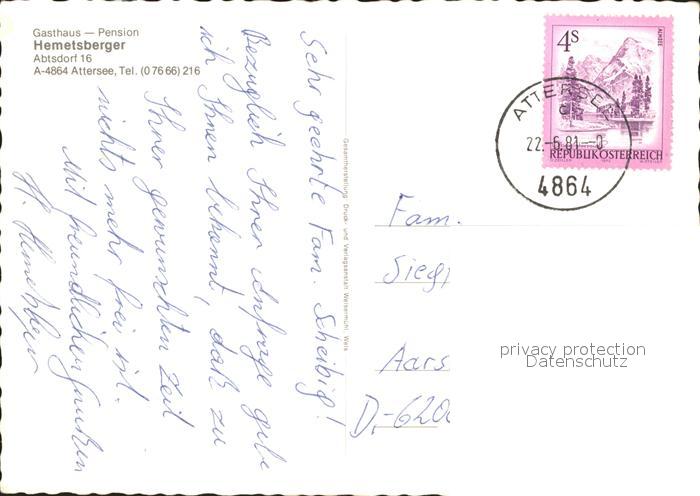 Gasthaus — Pension
Hemetsberger
Abtsdorf 16
A-4864 Attersee, Tel. (0 76 66) 216
Sehr geehrte Fam. Scheibig!
Bezüglich Ihrer Anfrage gebe
ich Ihnen bekannt, daß zu
Ihrer gewünschten Zeit
nichts mehr frei ist.
Mit freundlichen Grüßen
H. Hemetsberger
Gesamtherstellung: Druck- und Verlagsanstalt Welsermühl, Wels
4S
ALMSEE
REPUBLIK ÖSTERREICH
ATTERSEE
c
22.-6.81-0
4864
Fam.
Siegf
Aars
D-620
privacy protection
Datenschutz